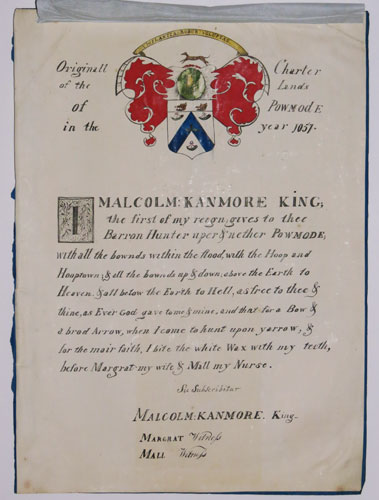 Originall
Charter
of the
Lands
of
POWMODE
in the
year 1057.
I MALCOLM: KANMORE KING;
the first of my reign; gives to thee
Barron Hunter uper & nether POWMODE;
with all the bounds within the flood, with the Hoop and
Hooptown; & all the bownds up & down; above the Earth to
Heaven. & all below the Earth to Hell, as free to thee &
thine, as Ever God gave to me & mine, and that for a Bow &
a brod Arrow, when I come to hunt upon yarrow, &
for the mair faith, I bite the white Wax with my teeth,
before Margrat my wife & Mall my Nurse.
Sic Subscribitur
MALCOLM: KANMORE. King.
MARGRAT Witness
MALL Witness